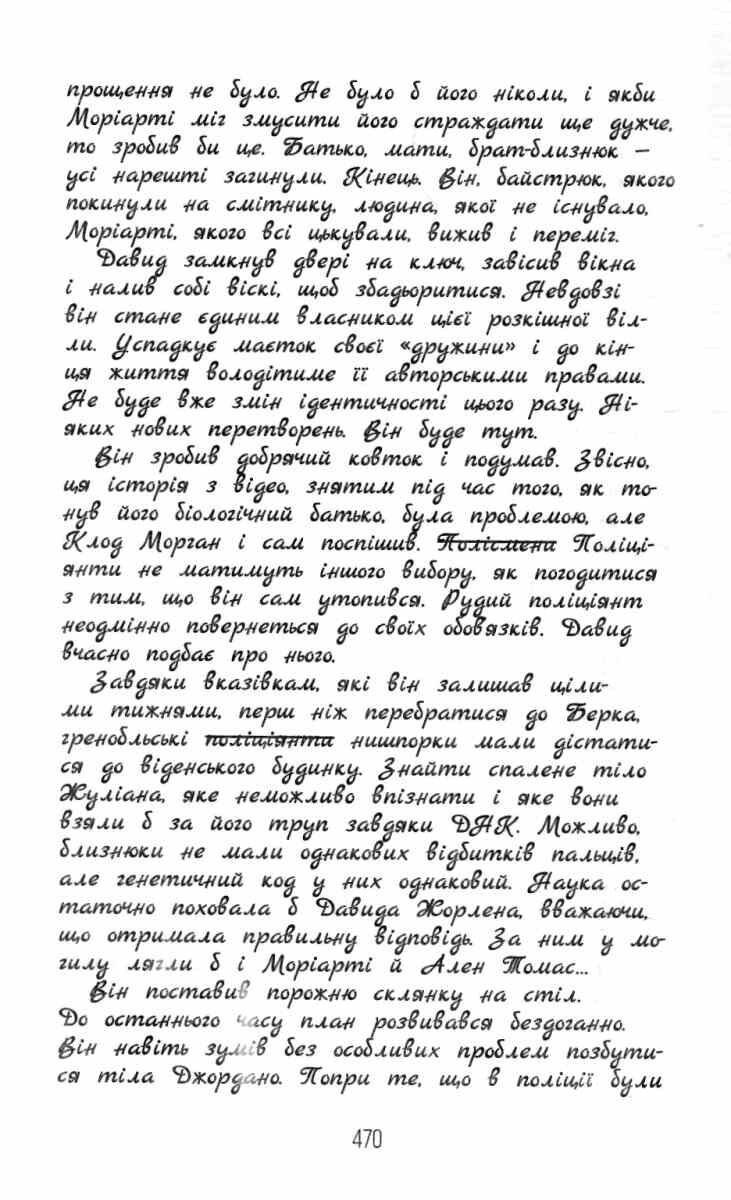 прощення не було. Не було б його ніколи, і якби
Моріарті міг змусити його страждати ще дужче,
то зробив би це. Батько, мати, брат-близнюк —
усі нарешті загинули. Кінець. Він, байстрюк, якого
покинули на смітнику, людина, якої не існувало,
Моріарті, якого всі цькували, вижив і переміг.
Давид замкнув двері на ключ, завісив вікна
і налив собі віскі, щоб збадьоритися. Невдовзі
він стане єдиним власником цієї розкішної віл-
ли. Успадкує маєток своєї «дружини» і до кін-
ця життя володітиме її авторськими правами.
Не буде вже змін ідентичності цього разу. Ні-
яких нових перетворень. Він буде тут.
Він зробив добрячий ковток і подумав. Звісно,
ця історія з відео, знятим під час того, як то-
нув його біологічний батько, була проблемою, але
Клод Морган і сам поспішив. Полісмени Поліці-
янти не матимуть іншого вибору, як погодитися
з тим, що він сам утопився. Рудий поліціянт
неодмінно повернеться до своїх обов'язків. Давид
вчасно подбає про нього.
Завдяки вказівкам, які він залишав ціли-
ми тижнями, перш ніж перебратися до Берка,
гренобльські поліціянти нишпорки мали дістати-
ся до віденського будинку. Знайти спалене тіло
Жуліана, яке неможливо впізнати і яке вони
взяли б за його труп завдяки ДНК. Можливо,
близнюки не мали однакових відбитків пальців,
але генетичний код у них однаковий. Наука ос-
таточно поховала б Давида Жорлена, вважаючи,
що отримала правильну відповідь. За ним у мо-
гилу лягли б і Моріарті й Ален Томас...
Він поставив порожню склянку на стіл.
До останнього часу план розвивався бездоганно.
Він навіть зумів без особливих проблем позбути-
ся тіла Джордано. Попри те, що в поліції були
470